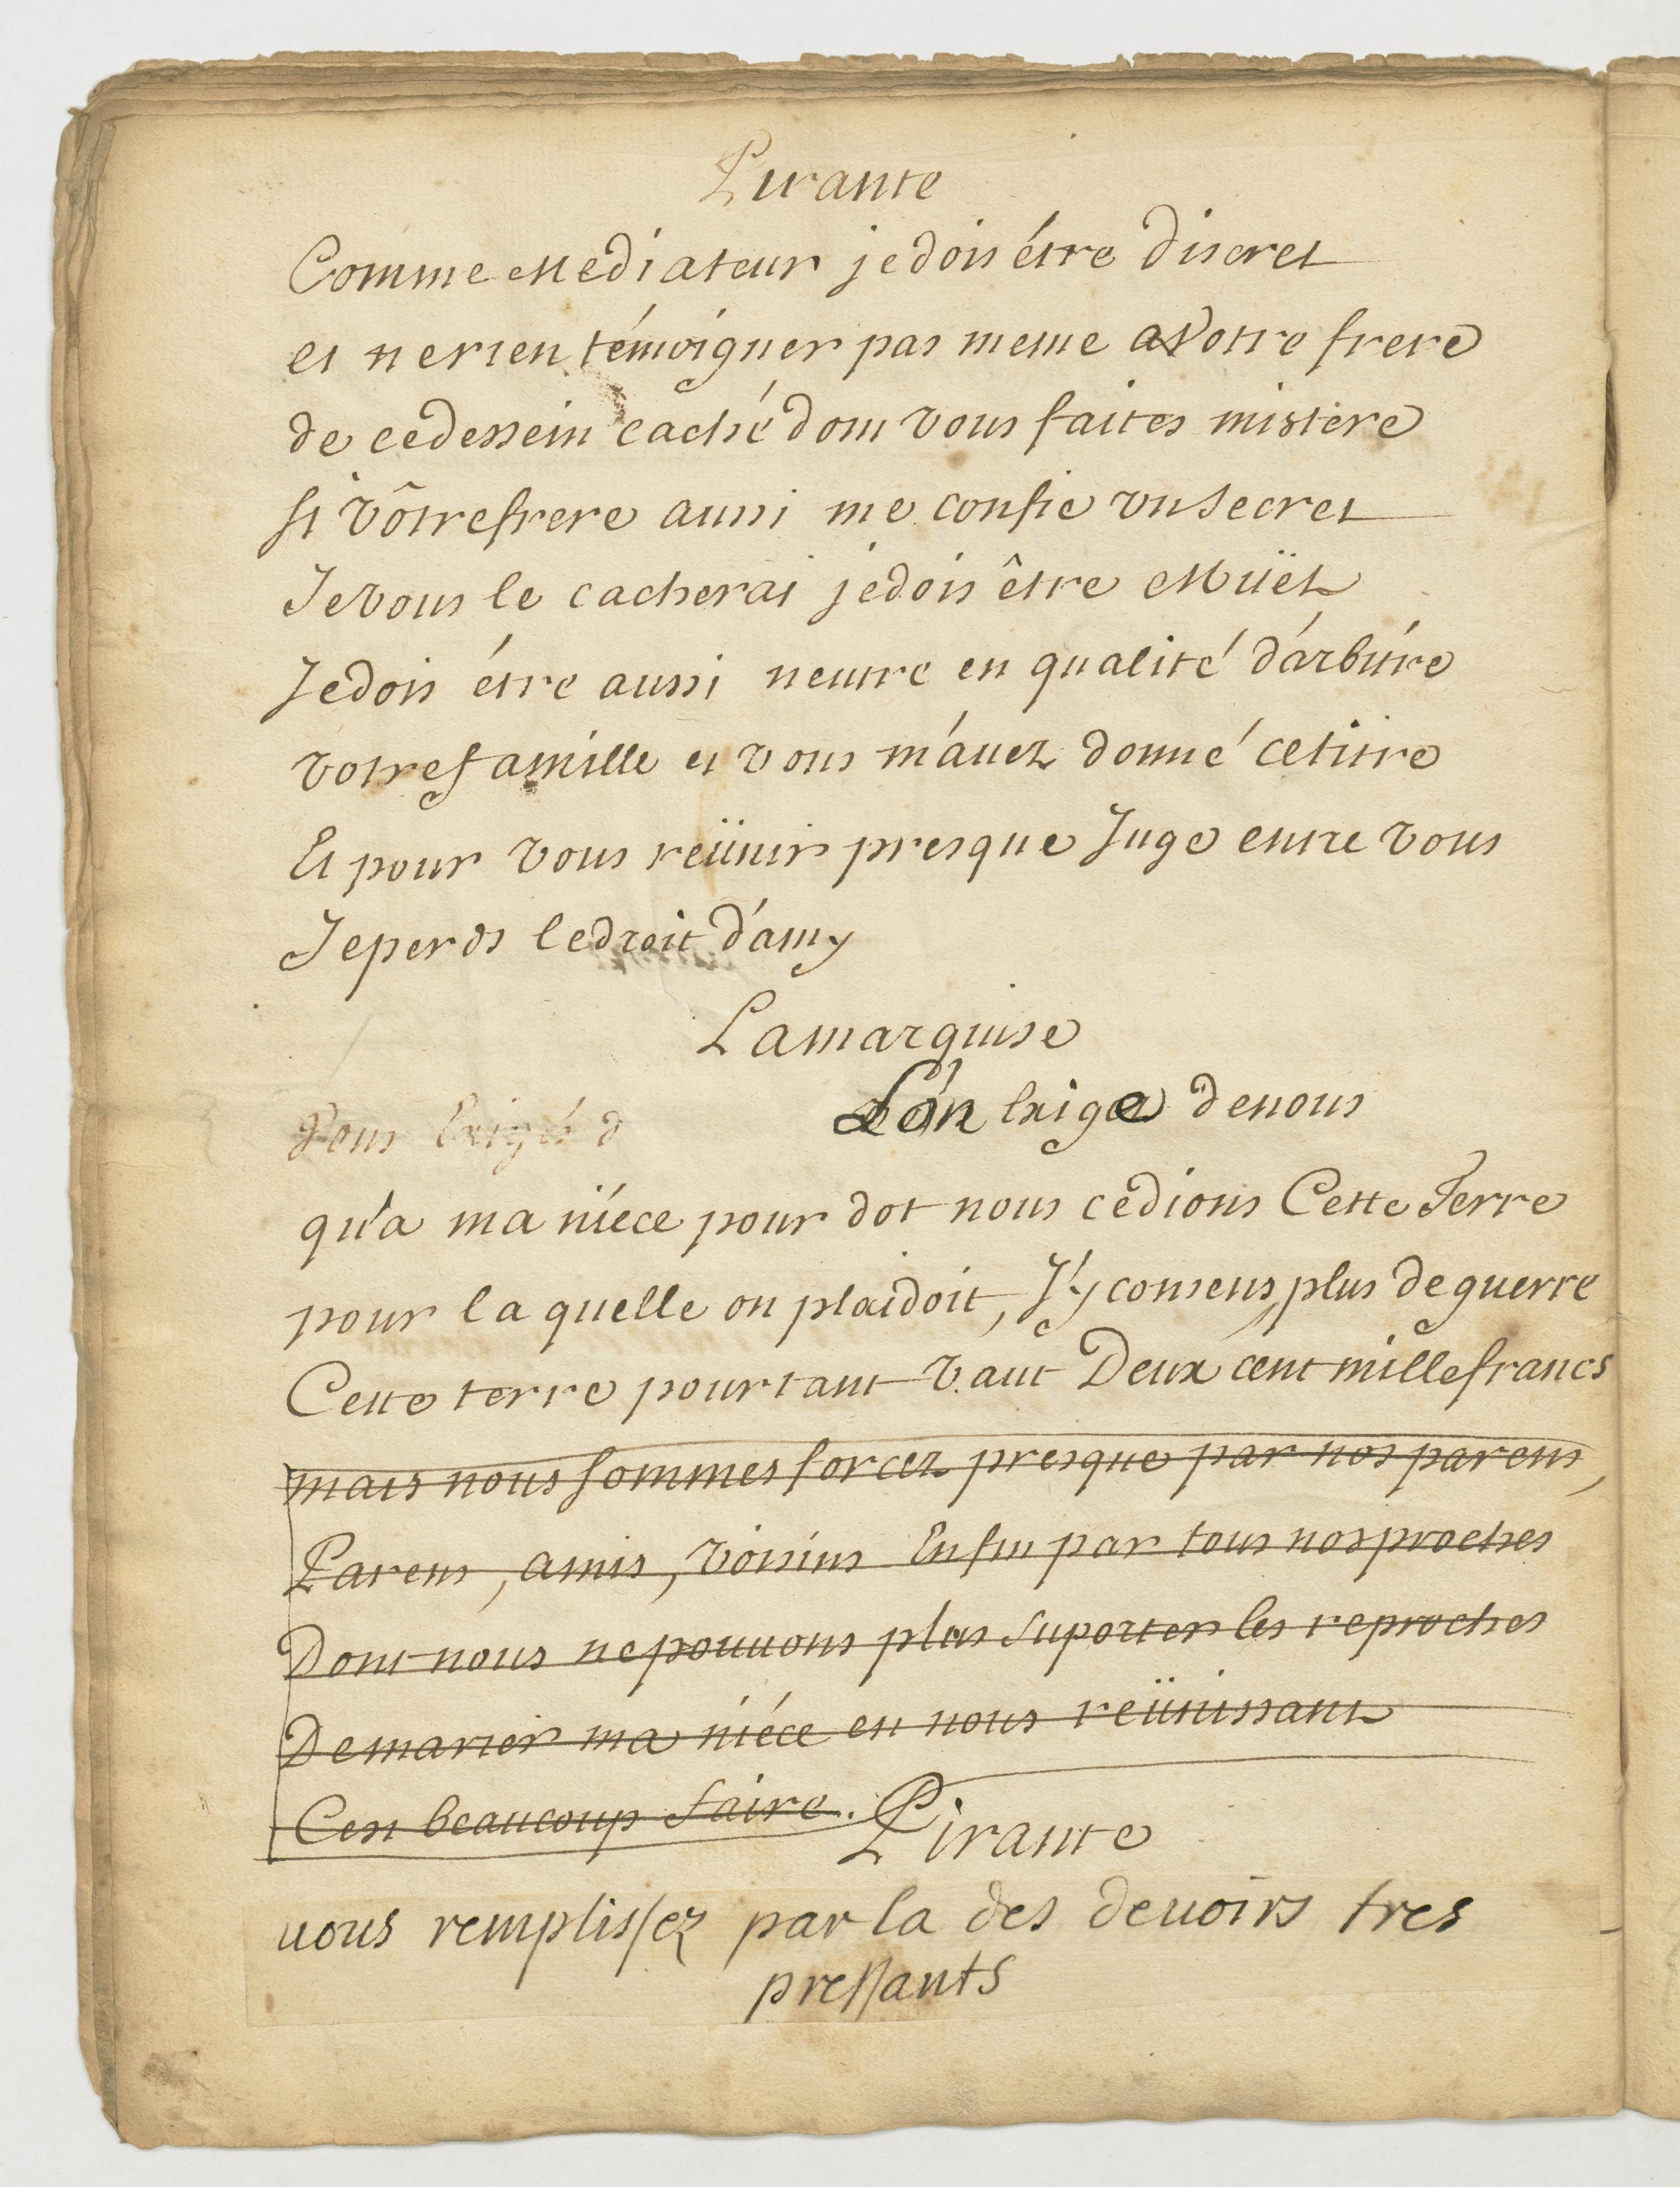 Pirante
Comme Mediateur je dois étre discret
et ne rien témoigner pas meme a Votre frere
de ce dessein caché dont vous faites mistere
si vôtre frere aussi me confie un secret
Je vous le cacherai je dois être Müet
Je dois étre aussi neutre en qualité d'arbitre
votre famille et vous m'auez donné ce titre
Et pour vous reünir presque Juge entre vous
Je perds le droit d'amy
La marquise
L'on Exige de nous
qu'a ma niéce pour dot nous cedions Cette Terre
pour la quelle on plaidoit, J'y consens, plus de guerre
Cette terre pourtant vaut Deux cent mille francs
mais nous sommes forcez presque par nos parens,
Parens, amis, voisins Enfin par tous nos proches
Dont nous ne pouuons plus suporter les reproches
De marier ma niéce en nous reünissant
C'est beaucoup faire.
Pirante
uous remplissez par la des deuoirs tres
pressants